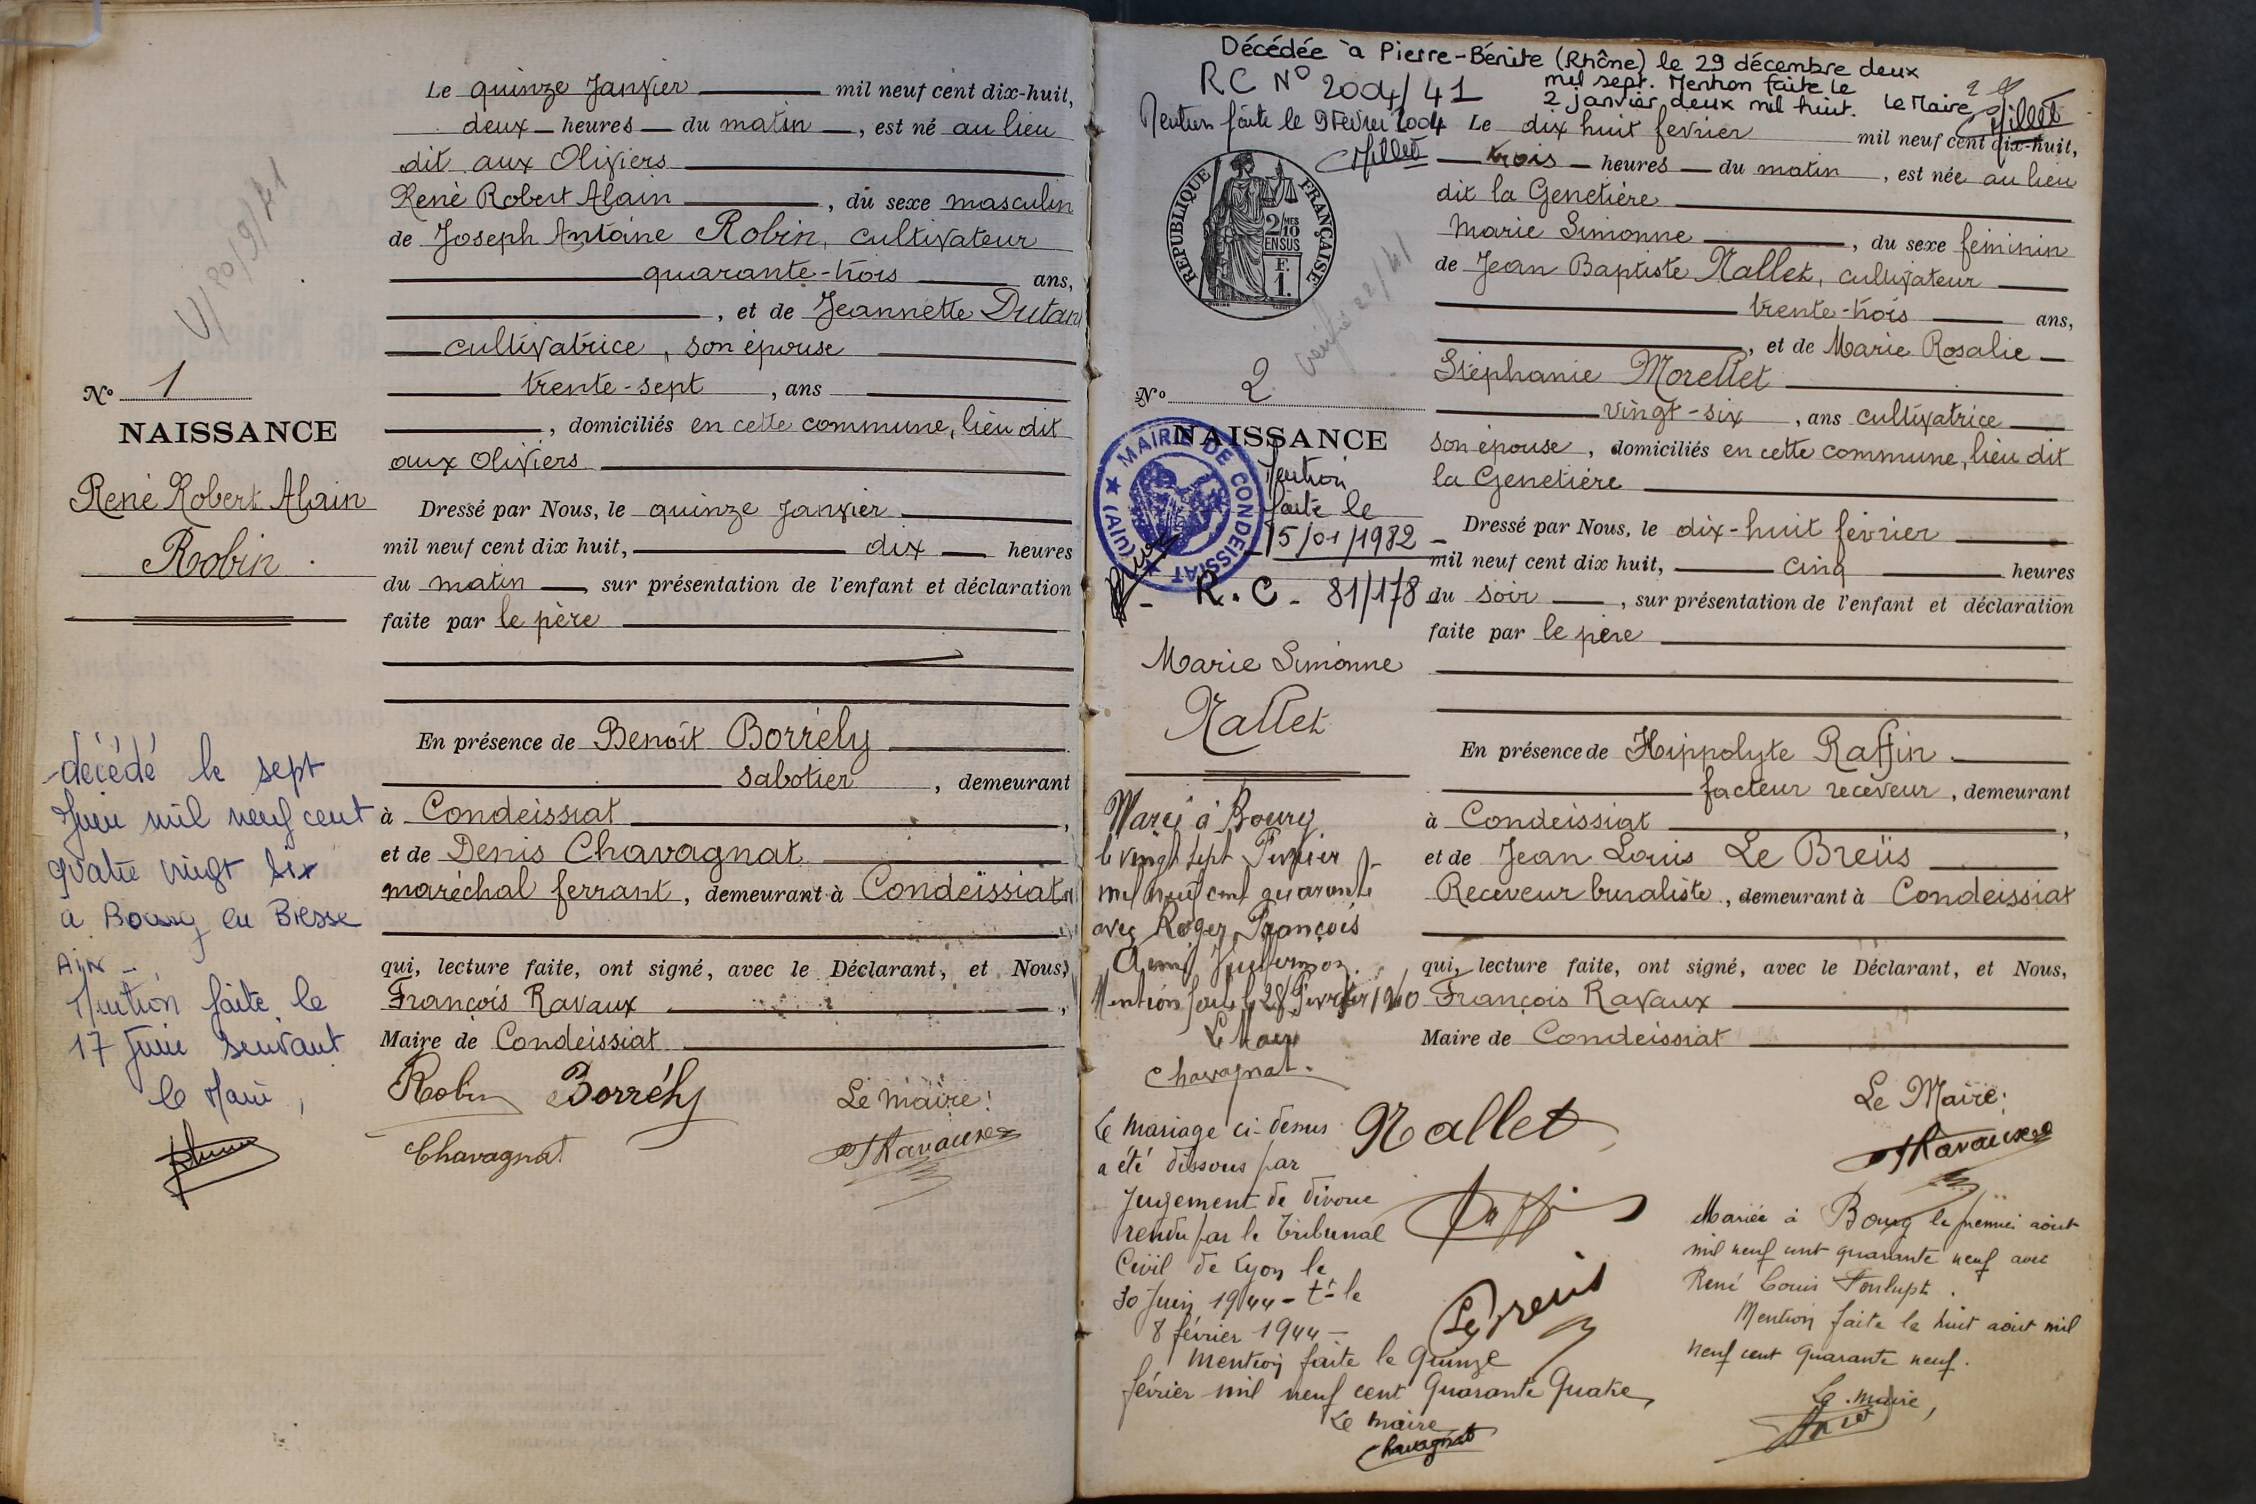 Le quinze Janvier mil neuf cent dix-huit,
deux heures du matin, est né au lieu
dit aux Oliviers
René Robert Alain, du sexe masculin
de Joseph Antoine Robin, cultivateur
quarante-trois ans,
, et de Jeannette Dutan
cultivatrice, son épouse
trente-sept, ans
, domiciliés en cette commune, lieu dit
aux Oliviers
Dressé par Nous, le quinze Janvier
mil neuf cent dix huit, dix heures
du matin, sur présentation de l'enfant et déclaration
faite par le père
En présence de Benoît Borrély
sabotier, demeurant
à Condeissiat,
et de Denis Chavagnat
maréchal ferrant, demeurant à Condeissiat
qui, lecture faite, ont signé, avec le Déclarant, et Nous,
François Ravaux,
Maire de Condeissiat
Robin Borrély Le maire:
Chavagnat Ravaux
V/20/9/41
No 1
NAISSANCE
René Robert Alain
Robin
décédé le sept
Juin mil neuf cent
quatre vingt six
à Bourg en Bresse
AIN -
Mention faite le
17 Juin suivant
le Maire,
Décédée à Pierre-Bénite (Rhône) le 29 décembre deux
mil sept. Mention faite le
2 janvier deux mil huit. Le Maire
Millet
RC No 2004/41
Mention faite le 9 Fevrier 2004
Millet
RÉPUBLIQUE FRANÇAISE
2/10 MES
EN SUS
F.
1.
No 2
NAISSANCE
MAIRIE DE CONDEISSIAT
(Ain)
Mention
faite le
15/01/1982
- R.C - 81/178
Marie Simonne
Nallet
Marié à Bourg
le vingt sept Fevrier
mil neuf cent quarante
avec Roger François
Mention faite le 28 Fevrier 1940
Le Maire
Chavagnat.
Le mariage ci-dessus
a été dissous par
Jugement de divorce
rendu par le Tribunal
Civil de Lyon le
30 Juin 1944 - tt le
8 février 1944 -
Mention faite le Quinze
février mil neuf cent Quarante Quatre
Le maire
Chavagnat
Le dix huit fevrier mil neuf cent dix-huit,
trois heures du matin, est née au lieu
dit la Genetière
Marie Simonne, du sexe féminin
de Jean Baptiste Nallet, cultivateur
trente-trois ans,
, et de Marie Rosalie
Stéphanie Morellet
vingt-six, ans cultivatrice
son épouse, domiciliés en cette commune, lieu dit
la Genetière
Dressé par Nous, le dix-huit février
mil neuf cent dix huit, cinq heures
du soir, sur présentation de l'enfant et déclaration
faite par le père
En présence de Hippolyte Raffin
facteur receveur, demeurant
à Condeissiat,
et de Jean Louis Le Breüs
Receveur buraliste, demeurant à Condeissiat
qui, lecture faite, ont signé, avec le Déclarant, et Nous,
François Ravaux
Maire de Condeissiat
Le Maire:
Nallet Ravaux
Raffin
Le Breüs
Mariée à Bourg le premier août
mil neuf cent quarante neuf avec
René Louis
Mention faite le huit août mil
neuf cent quarante neuf.
Le maire,